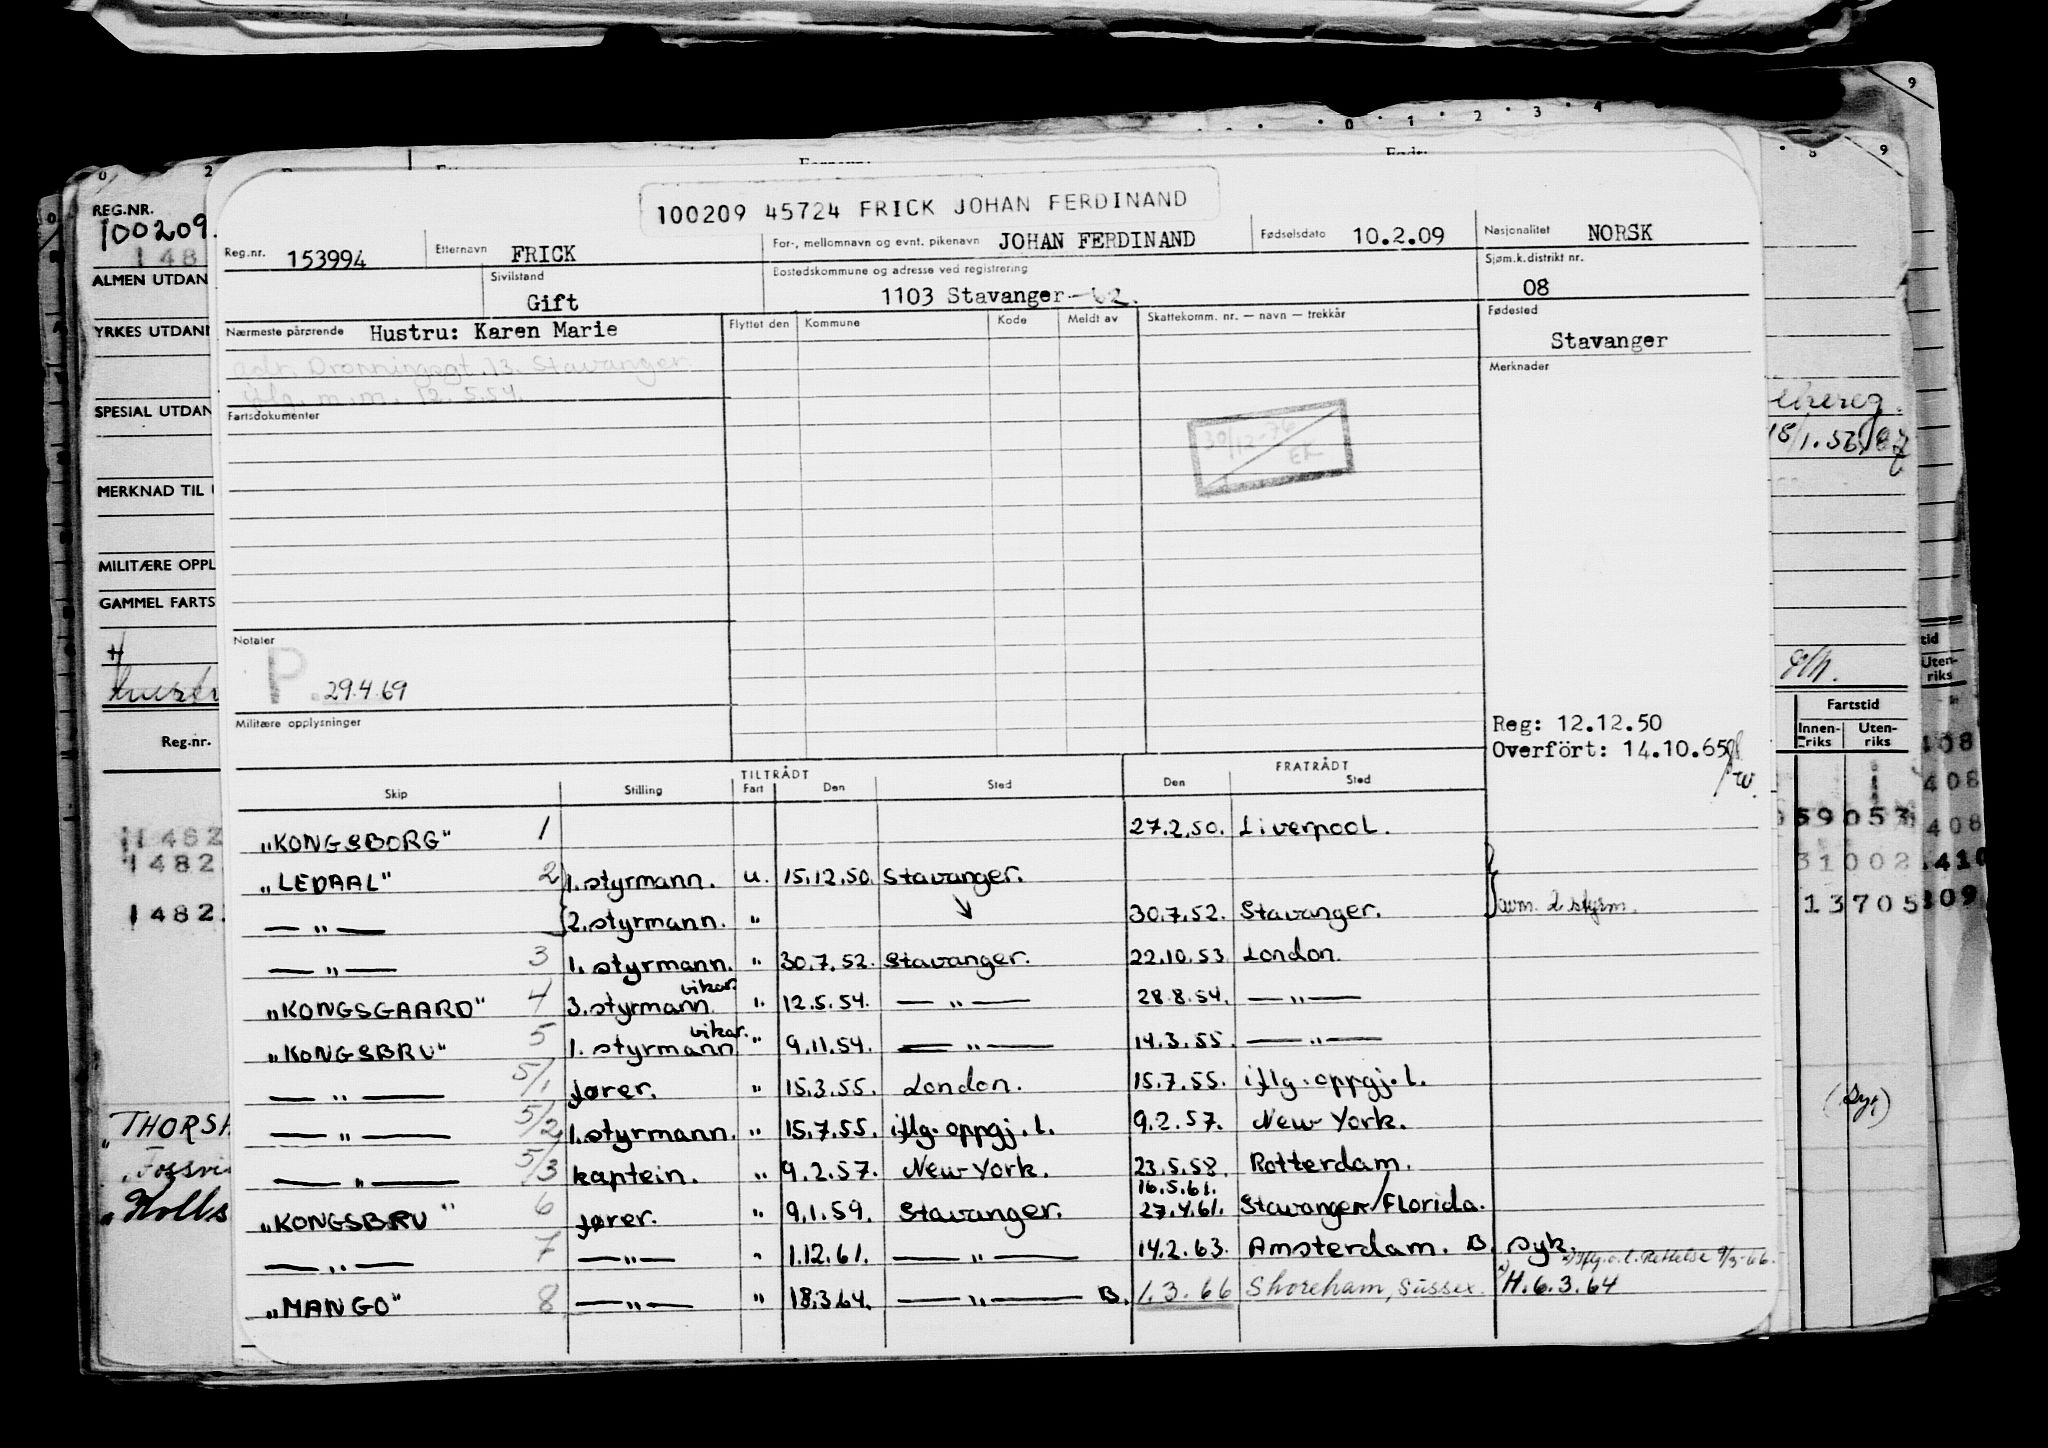 0 1 2 3 4
9
0 2 8 9
100209 45724 FRICK JOHAN FERDINAND
REG.NR.
100209.
148
Reg.nr. 153994 Etternavn FRICK For-, mellomnavn og evnt. pikenavn JOHAN FERDINAND Fødselsdato 10.2.09 Nasjonalitet NORSK
ALMEN UTDAN
Sivilstand Gift Bostedskommune og adresse ved registrering 1103 Stavanger Sjøm.k.distrikt nr. 08
YRKES UTDAN
Nærmeste pårørende Hustru: Karen Marie Flyttet den Kommune Kode Meldt av Skattekomm. nr. — navn — trekkår Fødested Stavanger
adr. Dronningsgt. 13. Stavanger.
iflg. m.m. 12.5.54.
Merknader
SPESIAL UTDAN
Fartsdokumenter
30/12-76
EK
MERKNAD TIL
MILITÆRE OPPL
GAMMEL FARTS
Notater
P. 29.4.69
Militære opplysninger
Reg: 12.12.50
Overfört: 14.10.65
Reg.nr.
Fartstid
Innenriks Utenriks
TILTRÅDT FRATRÅDT
Skip Stilling Fart Den Sted Den Sted
„KONGSBORG" 1 27.2.50. Liverpool.
„LEDAAL" 2 1. styrmann. u. 15.12.50. Stavanger.
— " — 2. styrmann. " 30.7.52. Stavanger. avm. 2 styrm.
— " — 3 1. styrmann. " 30.7.52. Stavanger. 22.10.53 London.
„KONGSGAARD" 4 3. styrmann vikar. " 12.5.54. — " — 28.8.54. — " —
„KONGSBRU" 5 1. styrmann vikar. " 9.11.54. — " — 14.3.55. — " —
— " — 5/1 fører. " 15.3.55. London. 15.7.55. iflg. oppgj. l.
— " — 5/2 1. styrmann. " 15.7.55. iflg. oppgj. l. 9.2.57. New York.
— " — 5/3 kaptein. " 9.2.57. New York. 23.5.58. Rotterdam.
16.5.61.
„KONGSBRU" 6 fører. " 9.1.59. Stavanger. 27.4.61. Stavanger/Florida.
— " — 7 — " — " 1.12.61. — " — 14.2.63. Amsterdam. B. syk.
„MANGO" 8 — " — " 18.3.64. — " — B. 1.3.66 Shoreham, Sussex. H. 6.3.64
THORSH
Fossvi
(syk)